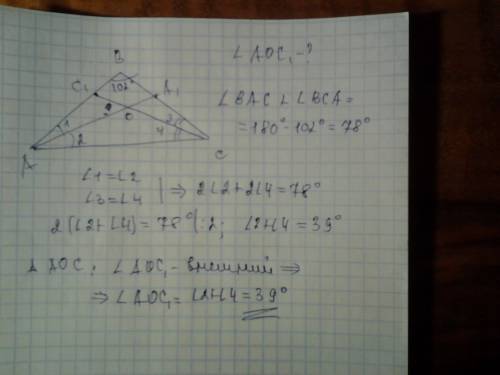 B
∠AOC₁ - ?
C₁ 102° A₁
? O
1 2 3 4
A C
∠BAC ∠ ∠BCA =
= 180° - 102° = 78°
∠1 = ∠2
∠3 = ∠4 | ⇒ 2∠2 + 2∠4 = 78°
2(∠2 + ∠4) = 78° | : 2; ∠2 + ∠4 = 39°
△ AOC: ∠AOC₁ - внешний ⇒
⇒ ∠AOC₁ = ∠2 + ∠4 = 39°